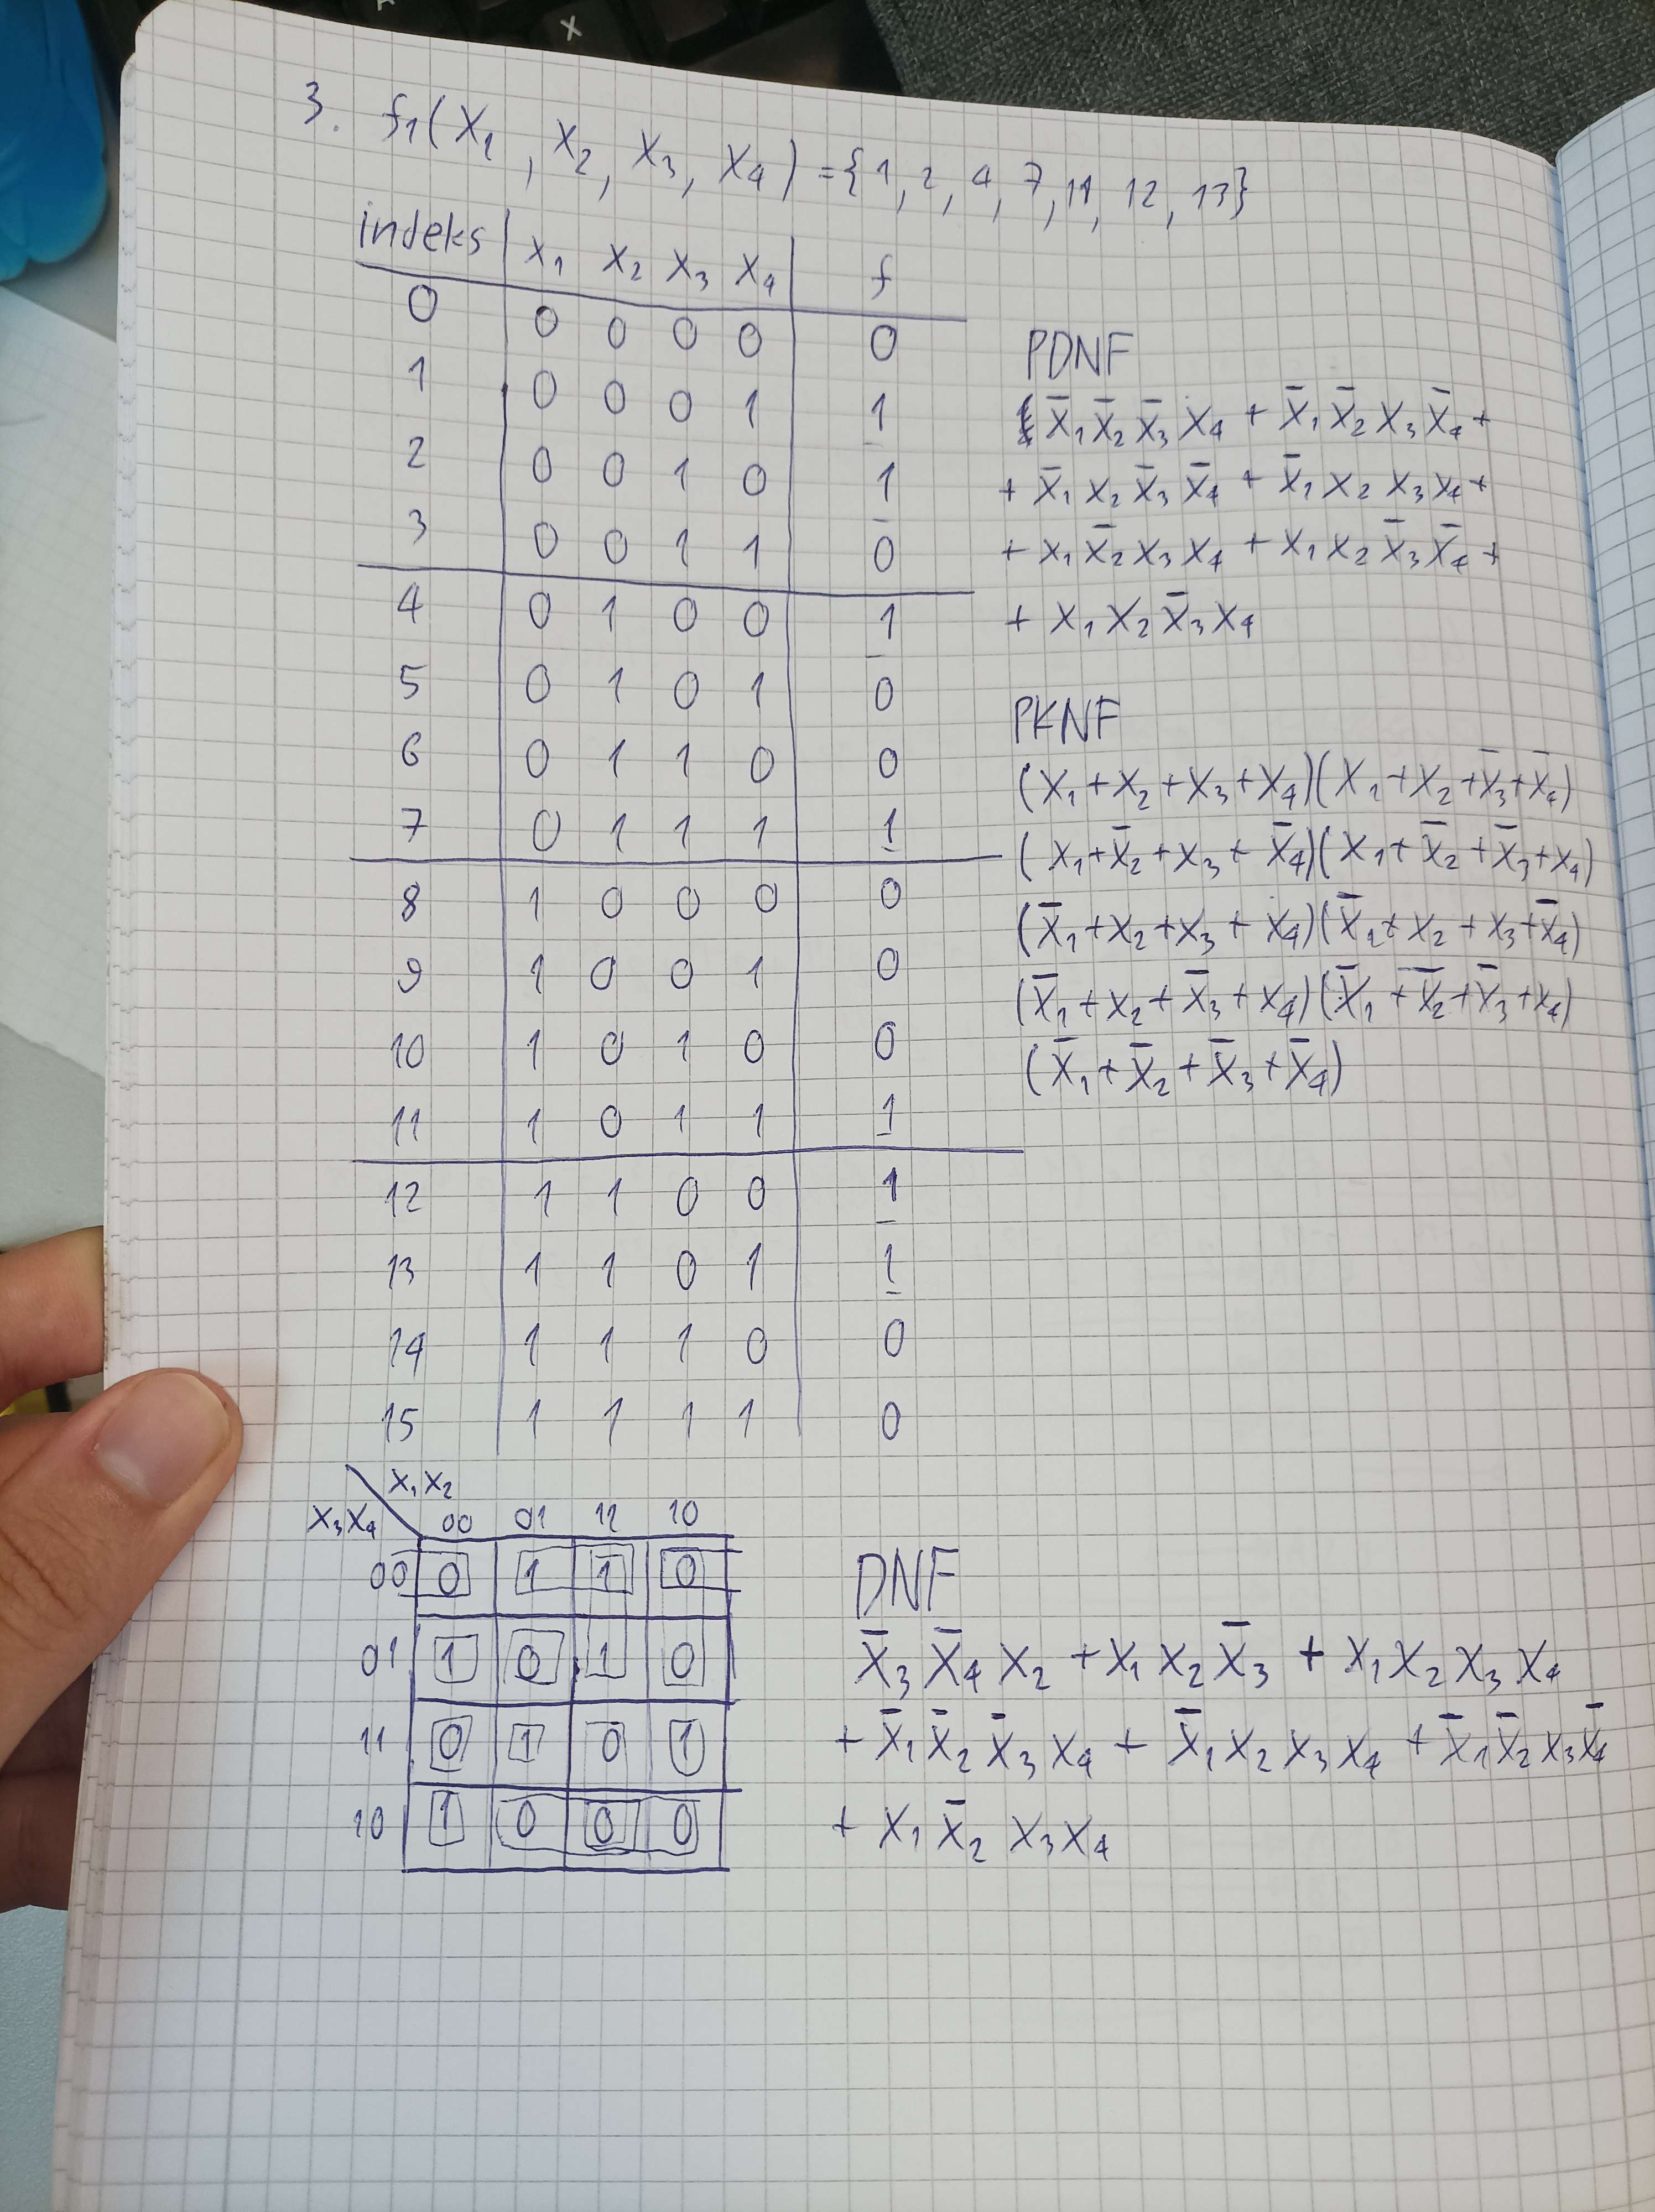 3. f₁(X₁, X₂, X₃, X₄) = {1, 2, 4, 7, 11, 12, 13}
indeks | X₁ X₂ X₃ X₄ | f
0 | 0 0 0 0 | 0
1 | 0 0 0 1 | 1
2 | 0 0 1 0 | 1
3 | 0 0 1 1 | 0
4 | 0 1 0 0 | 1
5 | 0 1 0 1 | 0
6 | 0 1 1 0 | 0
7 | 0 1 1 1 | 1
8 | 1 0 0 0 | 0
9 | 1 0 0 1 | 0
10 | 1 0 1 0 | 0
11 | 1 0 1 1 | 1
12 | 1 1 0 0 | 1
13 | 1 1 0 1 | 1
14 | 1 1 1 0 | 0
15 | 1 1 1 1 | 0
PDNF
X̄₁X̄₂X̄₃X₄ + X̄₁X̄₂X₃X̄₄ +
+ X̄₁X₂X̄₃X̄₄ + X̄₁X₂X₃X₄ +
+ X₁X̄₂X₃X₄ + X₁X₂X̄₃X̄₄ +
+ X₁X₂X̄₃X₄
PKNF
(X₁+X₂+X₃+X₄)(X₁+X₂+X̄₃+X̄₄)
(X₁+X̄₂+X₃+X̄₄)(X₁+X̄₂+X̄₃+X₄)
(X̄₁+X₂+X₃+X₄)(X̄₁+X₂+X₃+X̄₄)
(X̄₁+X₂+X̄₃+X₄)(X̄₁+X̄₂+X̄₃+X₄)
(X̄₁+X̄₂+X̄₃+X̄₄)
X₁X₂
X₃X₄ 00 01 11 10
00 0 1 1 0
01 1 0 1 0
11 0 1 0 1
10 1 0 0 0
DNF
X̄₃X̄₄X₂ + X₁X₂X̄₃ + X₁X₂X₃X₄
+ X̄₁X̄₂X̄₃X₄ + X̄₁X₂X₃X₄ + X̄₁X̄₂X₃X̄₄
+ X₁X̄₂X₃X₄
A
X